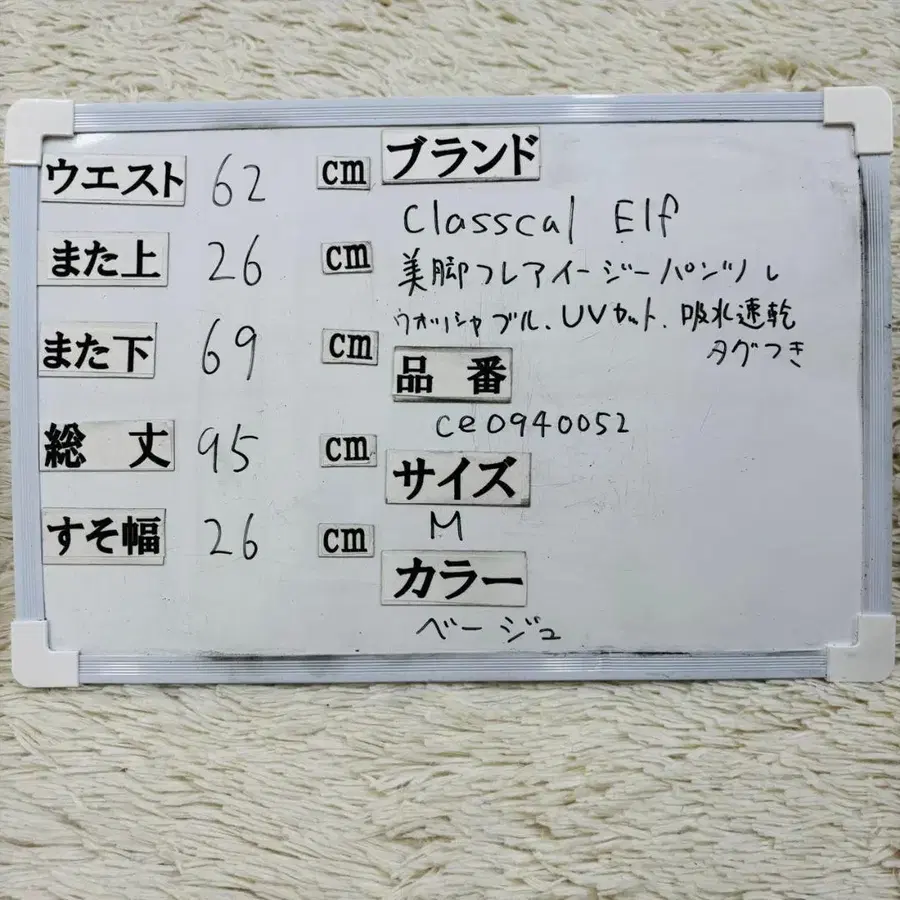 ウエスト 62 cm
また上 26 cm
また下 69 cm
総丈 95 cm
すそ幅 26 cm
ブランド
Classcal Elf
美脚フレアイージーパンツ
ウォッシャブル、UVカット、吸水速乾
タグつき
品番
ce0940052
サイズ
M
カラー
ベージュ